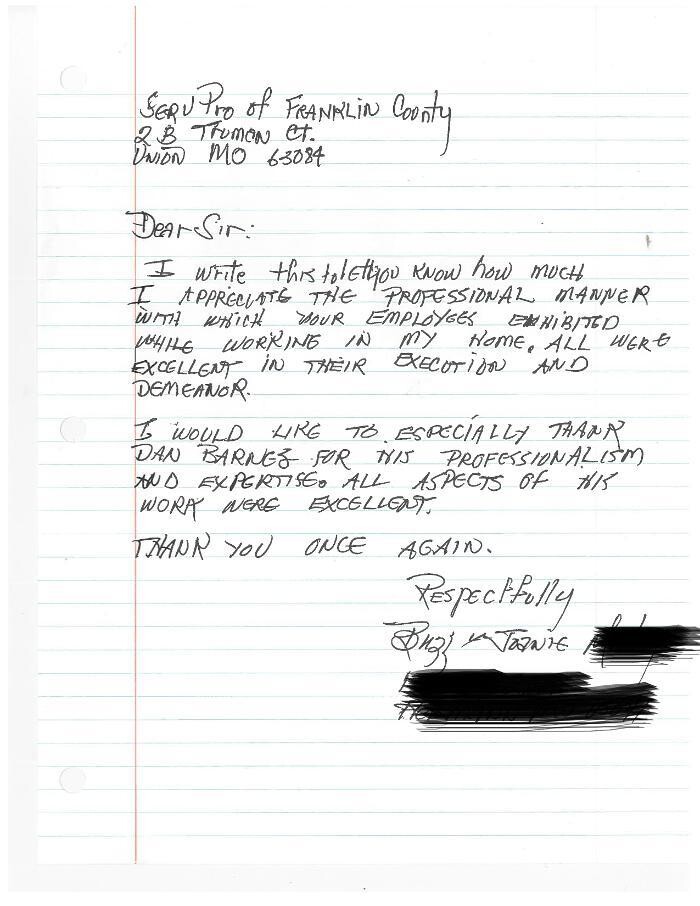 SERV Pro of FRANKLIN County
2 B Truman Ct.
Union MO 63084
Dear Sir:
I write this to let you know how much
I APPRECIATE THE PROFESSIONAL MANNER
WITH WHICH YOUR EMPLOYEES EXHIBITED
WHILE WORKING IN MY HOME. ALL WERE
EXCELLENT IN THEIR EXECUTION AND
DEMEANOR.
I WOULD LIKE TO ESPECIALLY THANK
DAN BARNEZ FOR HIS PROFESSIONALISM
AND EXPERTISE. ALL ASPECTS OF HIS
WORK WERE EXCELLENT.
THANK YOU ONCE AGAIN.
Respectfully
Buzz Joanie